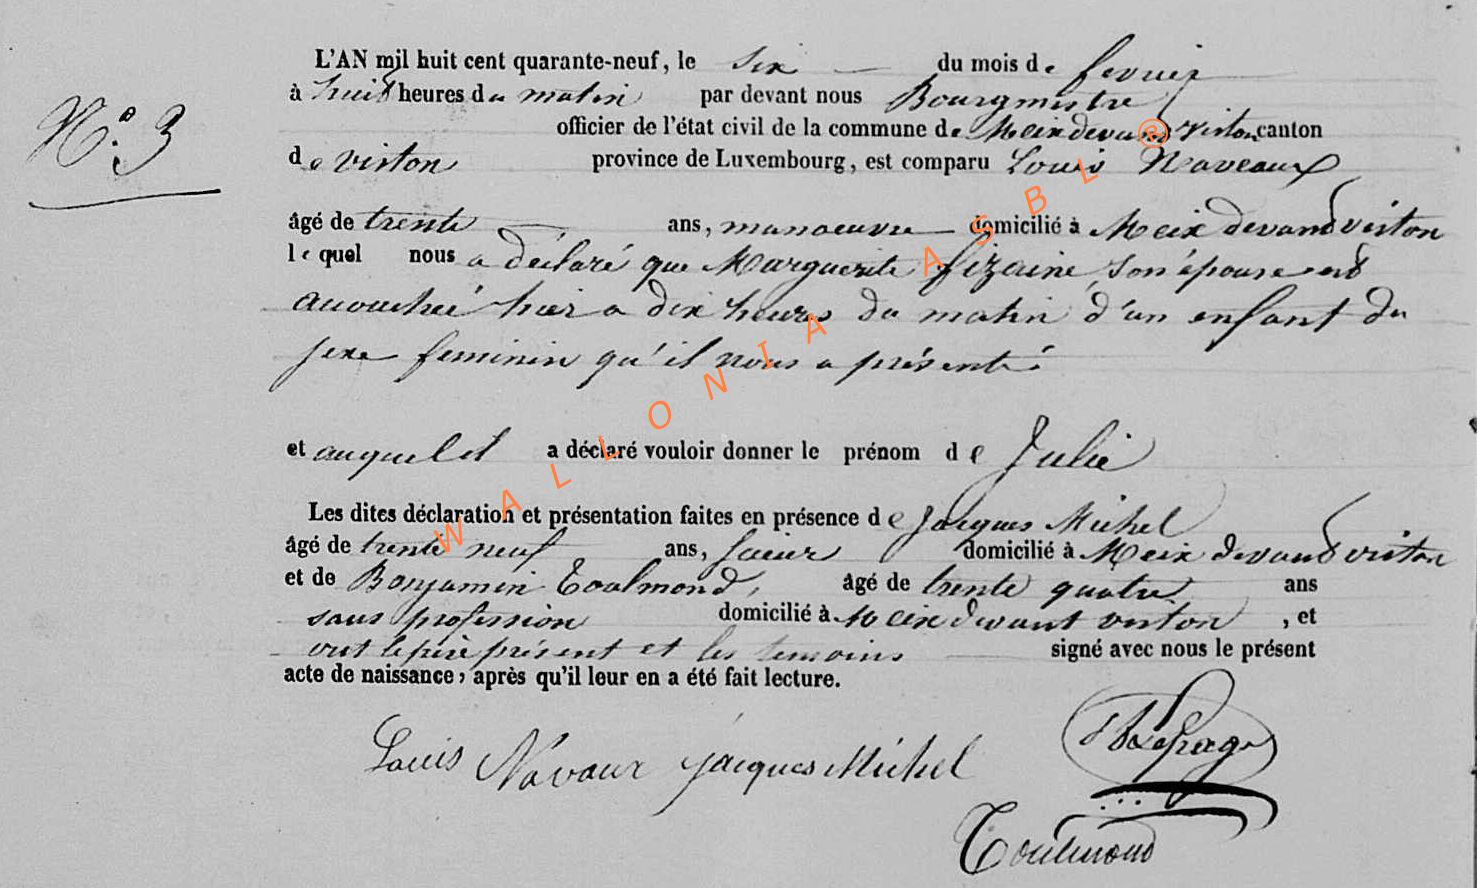 N° 3
L'AN mil huit cent quarante-neuf, le six du mois de fevrier
à huit heures du matin par devant nous Bourgmestre
officier de l'état civil de la commune de Meix devand virton canton
de virton province de Luxembourg, est comparu Louis Naveaux
âgé de trente ans, manoeuvre domicilié à Meix devand virton
lequel nous a déclaré que Marguerite fizaine son épouse est
accouchée hier a dix heures du matin d'un enfant du
sexe feminin qu'il nous a présenté
et auquel il a déclaré vouloir donner le prénom de Julie
Les dites déclaration et présentation faites en présence de Jacques Michel
âgé de trente neuf ans, domicilié à Meix devand virton
et de Benjamin Toulmond, âgé de trente quatre ans
sans profession domicilié à Meix devant virton, et
ont le père présent et les temoins signé avec nous le présent
acte de naissance, après qu'il leur en a été fait lecture.
Louis Navaux jacques Michel
Toulmond
WALLONIA ASBL ®